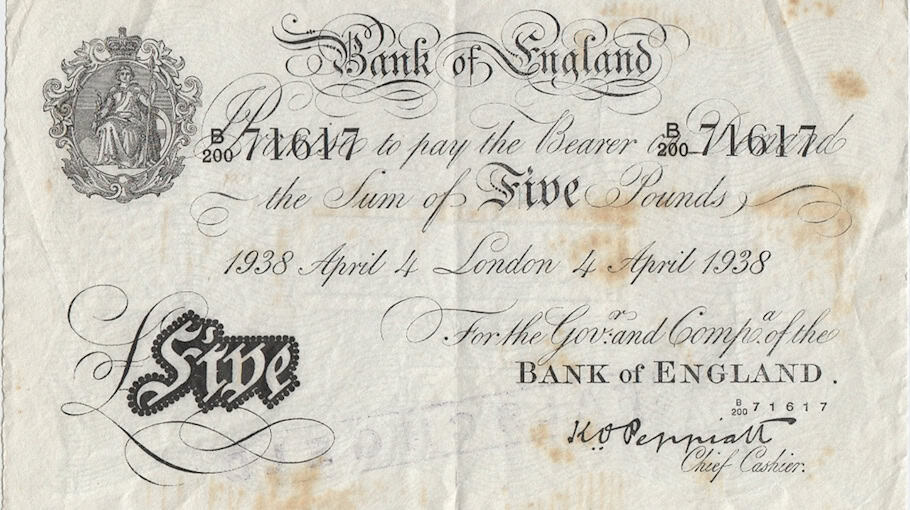 Bank of England
B/200 71617 B/200 71617
I Promise to pay the Bearer on Demand
the Sum of Five Pounds
1938 April 4 London 4 April 1938
For the Gov.r and Comp.a of the
BANK of ENGLAND.
£Five
B/200 71617
K O Peppiatt
Chief Cashier.